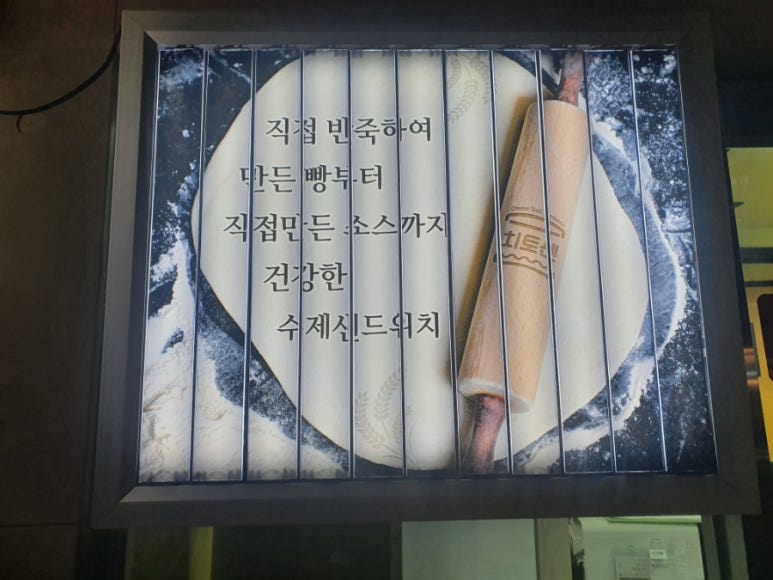 직접 반죽하여
만든 빵부터
직접만든 소스까지
건강한
수제샌드위치
치토샌